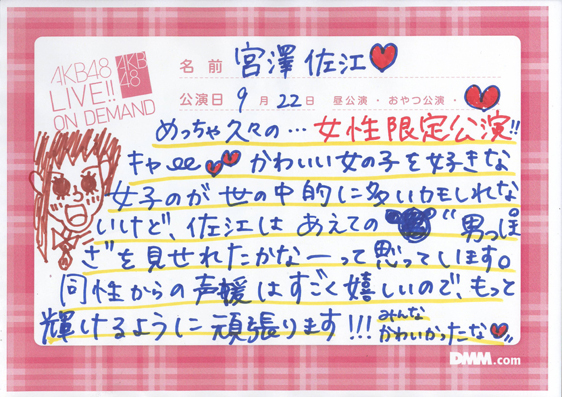 AKB48
LIVE!!
ON DEMAND
AKB
48
名前 宮澤 佐江♥
公演日 9月22日 昼公演・おやつ公演・
めっちゃ久々の…女性限定公演!!
キャー♥♥かわいい女の子を好きな
女子のが世の中的に多いカモしれな
いけど、佐江はあえての“男っぽ
さ”を見せれたかなーって思っています。
同性からの声援はすごく嬉しいので、もっと
輝けるように頑張ります!!!
みんな
かわいかったな♥
DMM.com